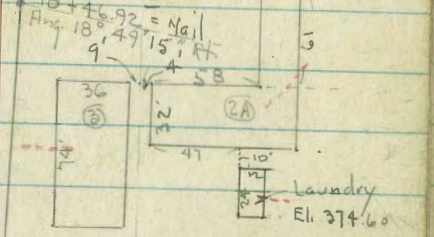 18+46.92 = Nail
Ang. 18° 49' 15" Rt
9' 4'
58
36
③
74'
32'
(2A)
61
47
10'
5'
24
Laundry
El. 374.60